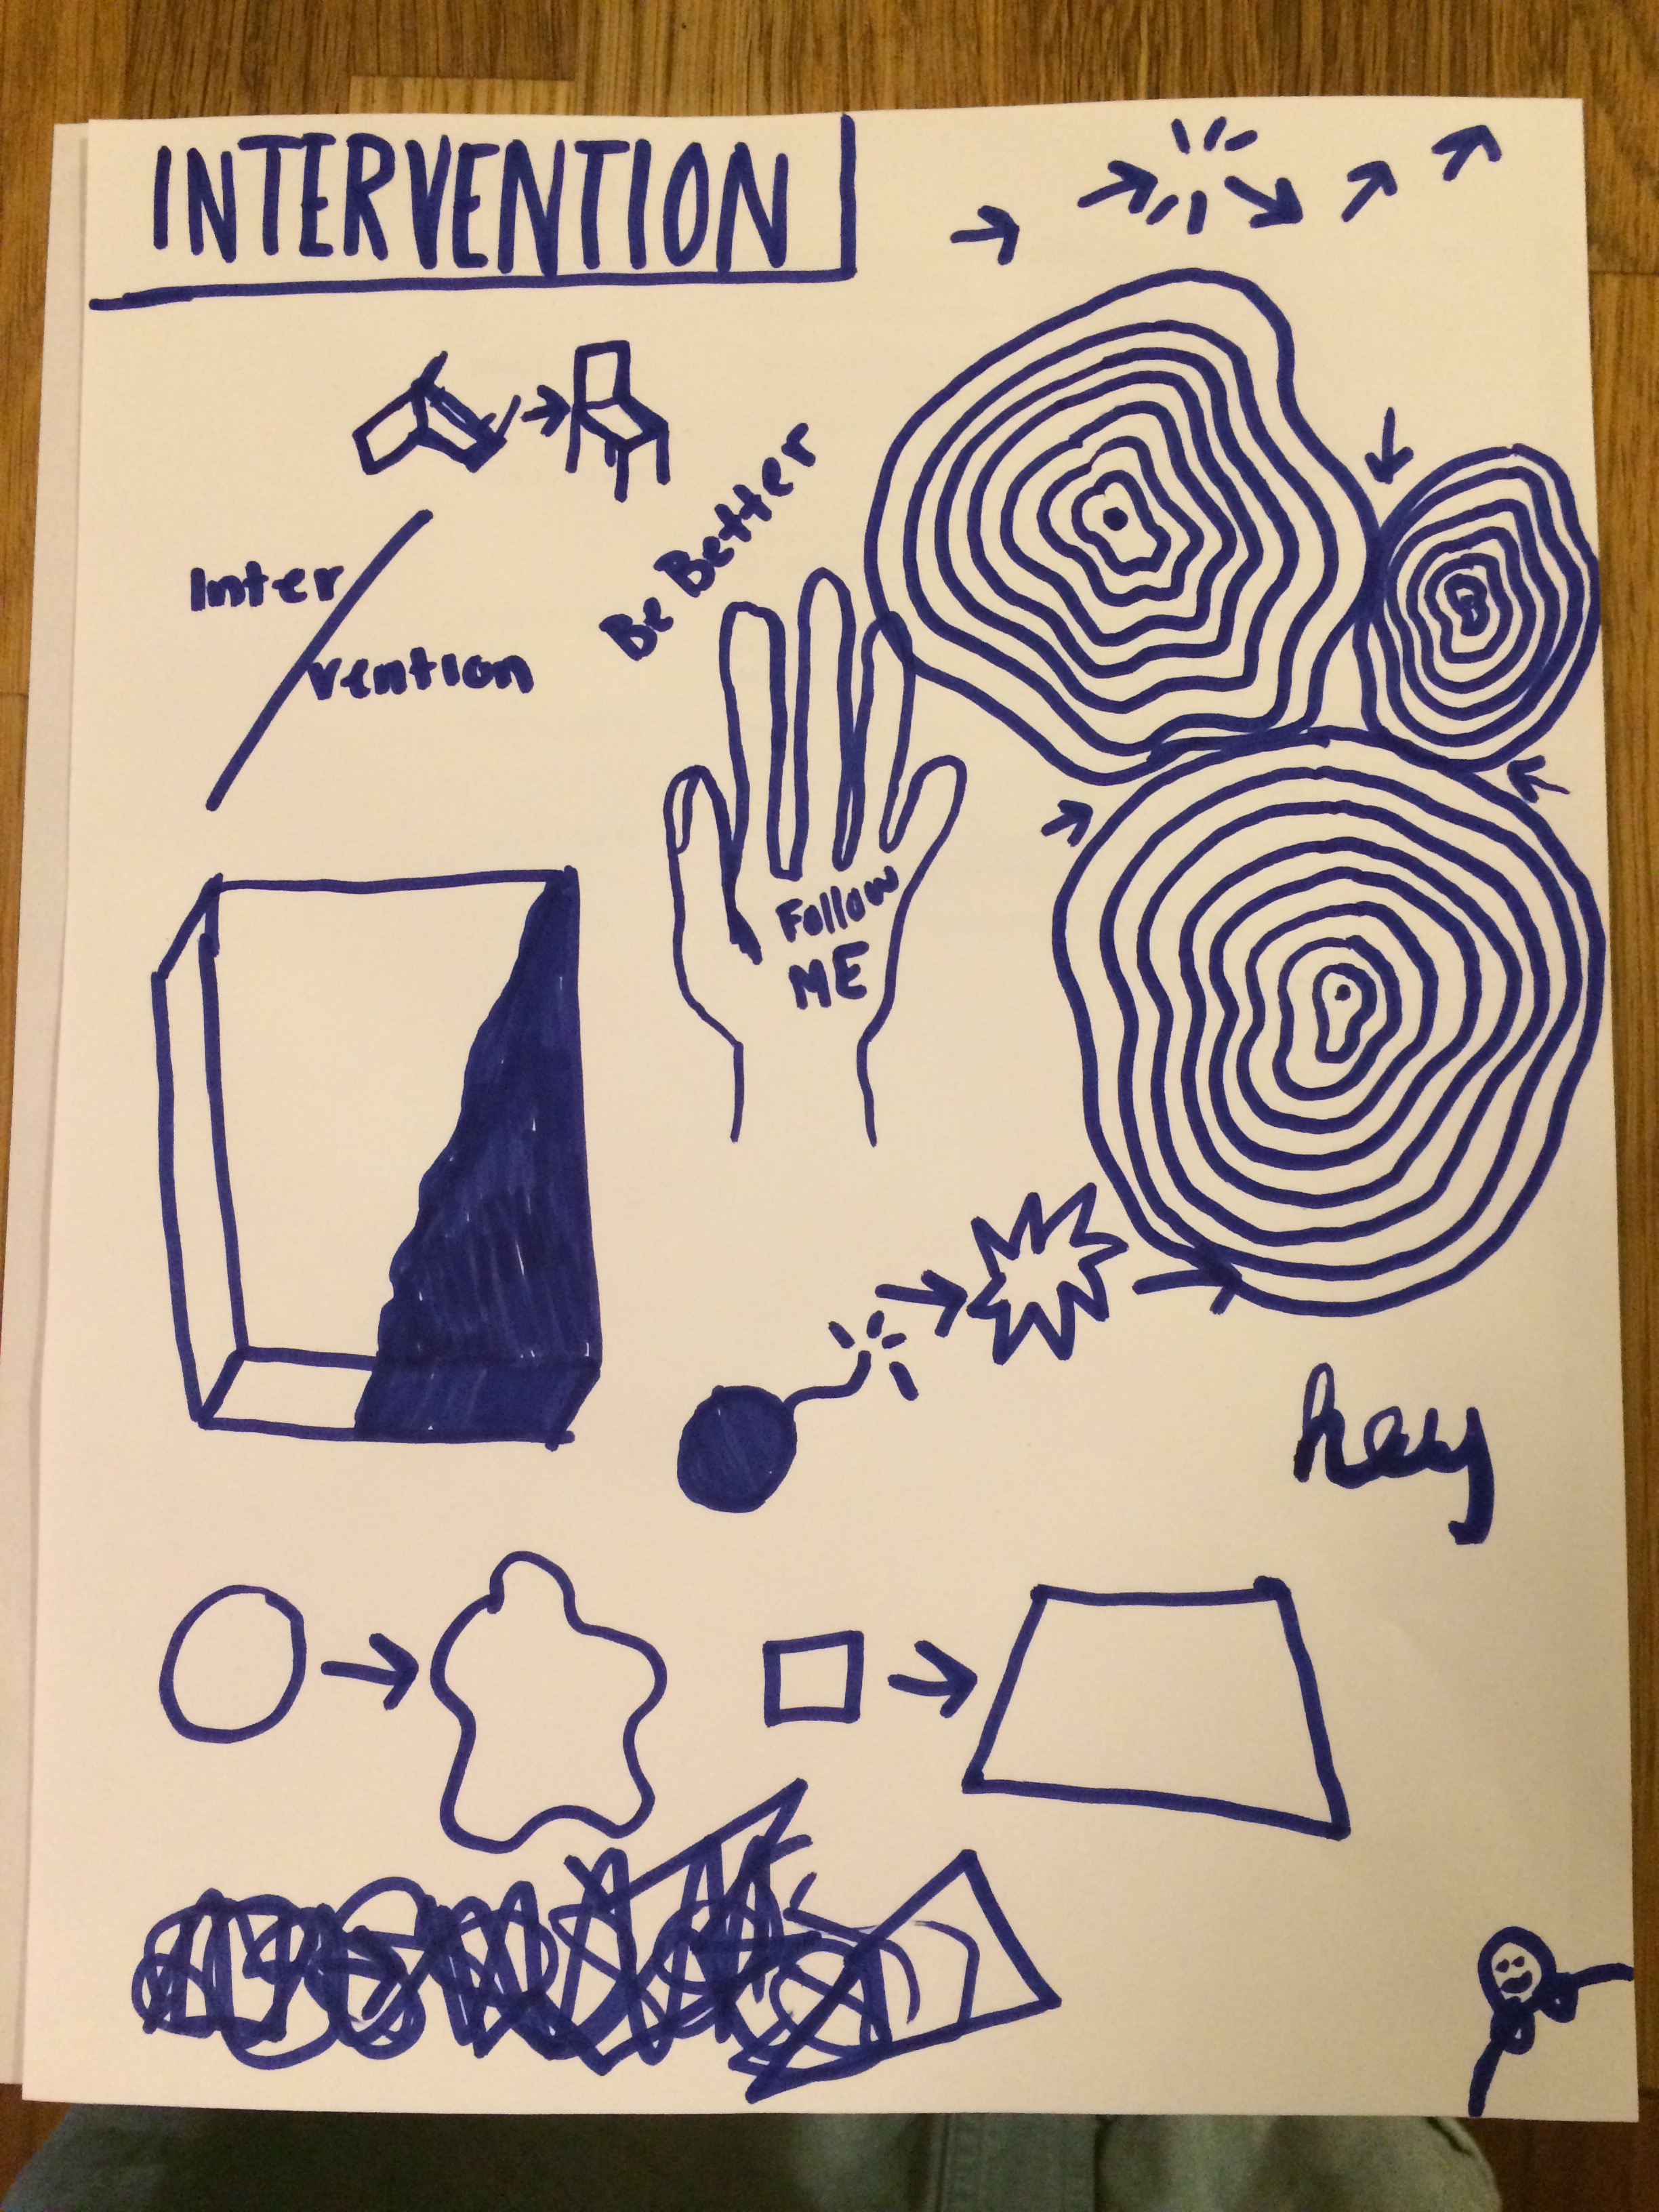 INTERVENTION
Inter
vention
Be Better
Follow
ME
hey